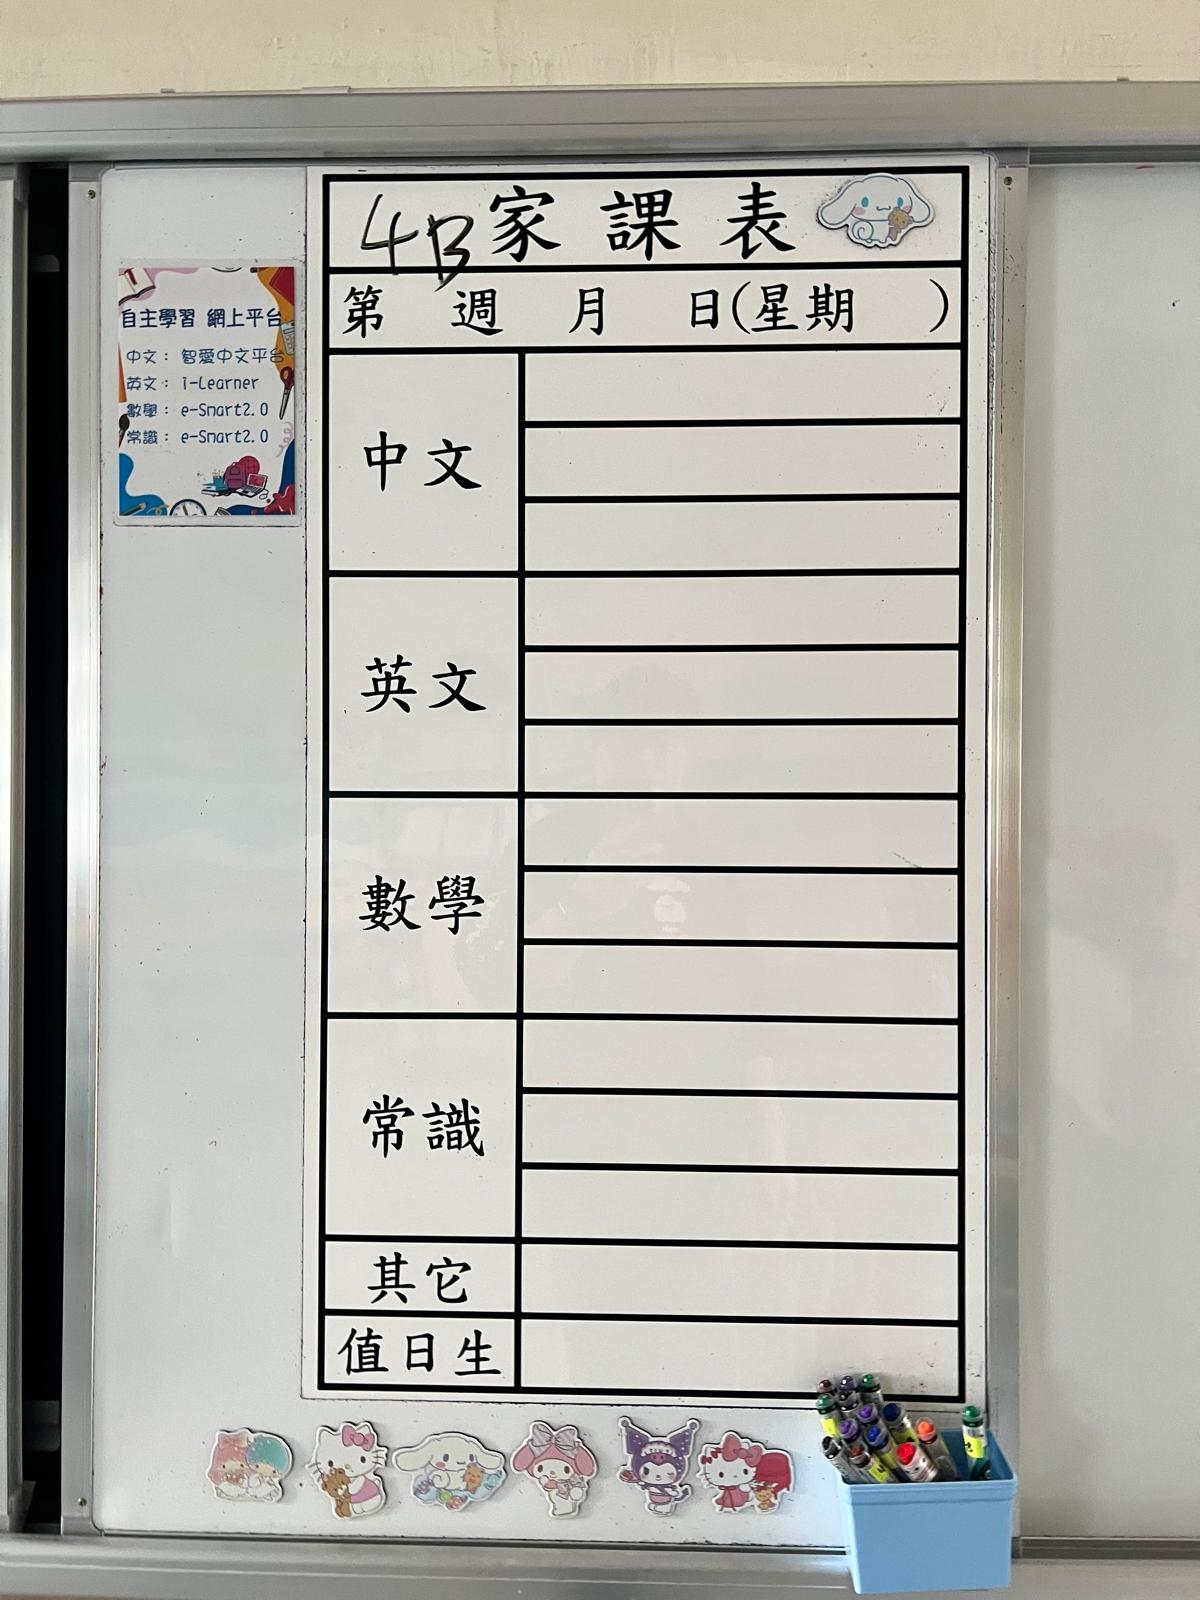 4B家課表
第 週 月 日(星期 )
自主學習 網上平台
中文： 智愛中文平台
英文： i-Learner
數學： e-Smart2.0
常識： e-Smart2.0
中文
英文
數學
常識
其它
值日生